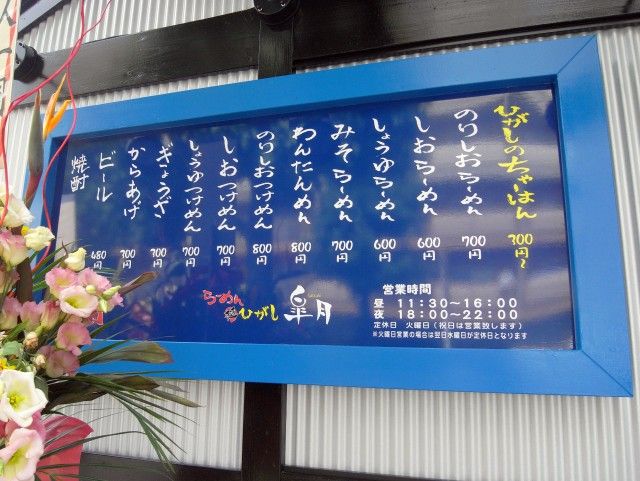 ひがしのちゃーはん 300~
のりしおらーめん 700
しおらーめん 600
しょうゆらーめん 600
みそらーめん 700
わんたんめん 800
のりしおつけめん 800
しおつけめん 700
しょうゆつけめん 700
ぎょうざ 300
からあげ 300
ビール 480
焼酎
らーめん
ひがし
皐月
営業時間
昼 11:30~16:00
夜 18:00~22:00
定休日 火曜日(祝日は営業致します)
※火曜日営業の場合は翌日水曜日が定休日となります